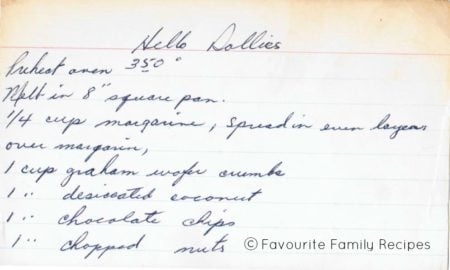 Hello Dollies
Preheat oven 350°
Melt in 8" square pan.
1/4 cup margarine, Spread in even layers
over margarin,
1 cup graham wafer crumbs
1 " desiccated coconut
1 " chocolate chips
1 " chopped nuts
© Favourite Family Recipes